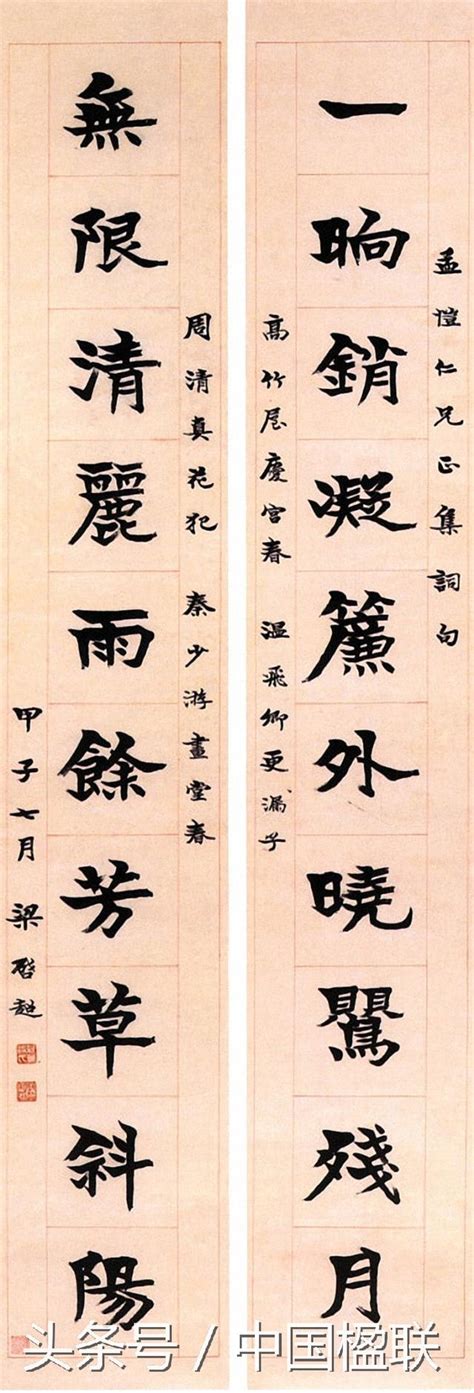 孟愷仁兄正集詞句
一晌銷凝簾外曉鸎殘月
高竹屋慶宮春 温飛卿更漏子
周清真花犯 秦少游畫堂春
無限清麗雨餘芳草斜陽
甲子七月 梁啓超
头条号 / 中国楹联